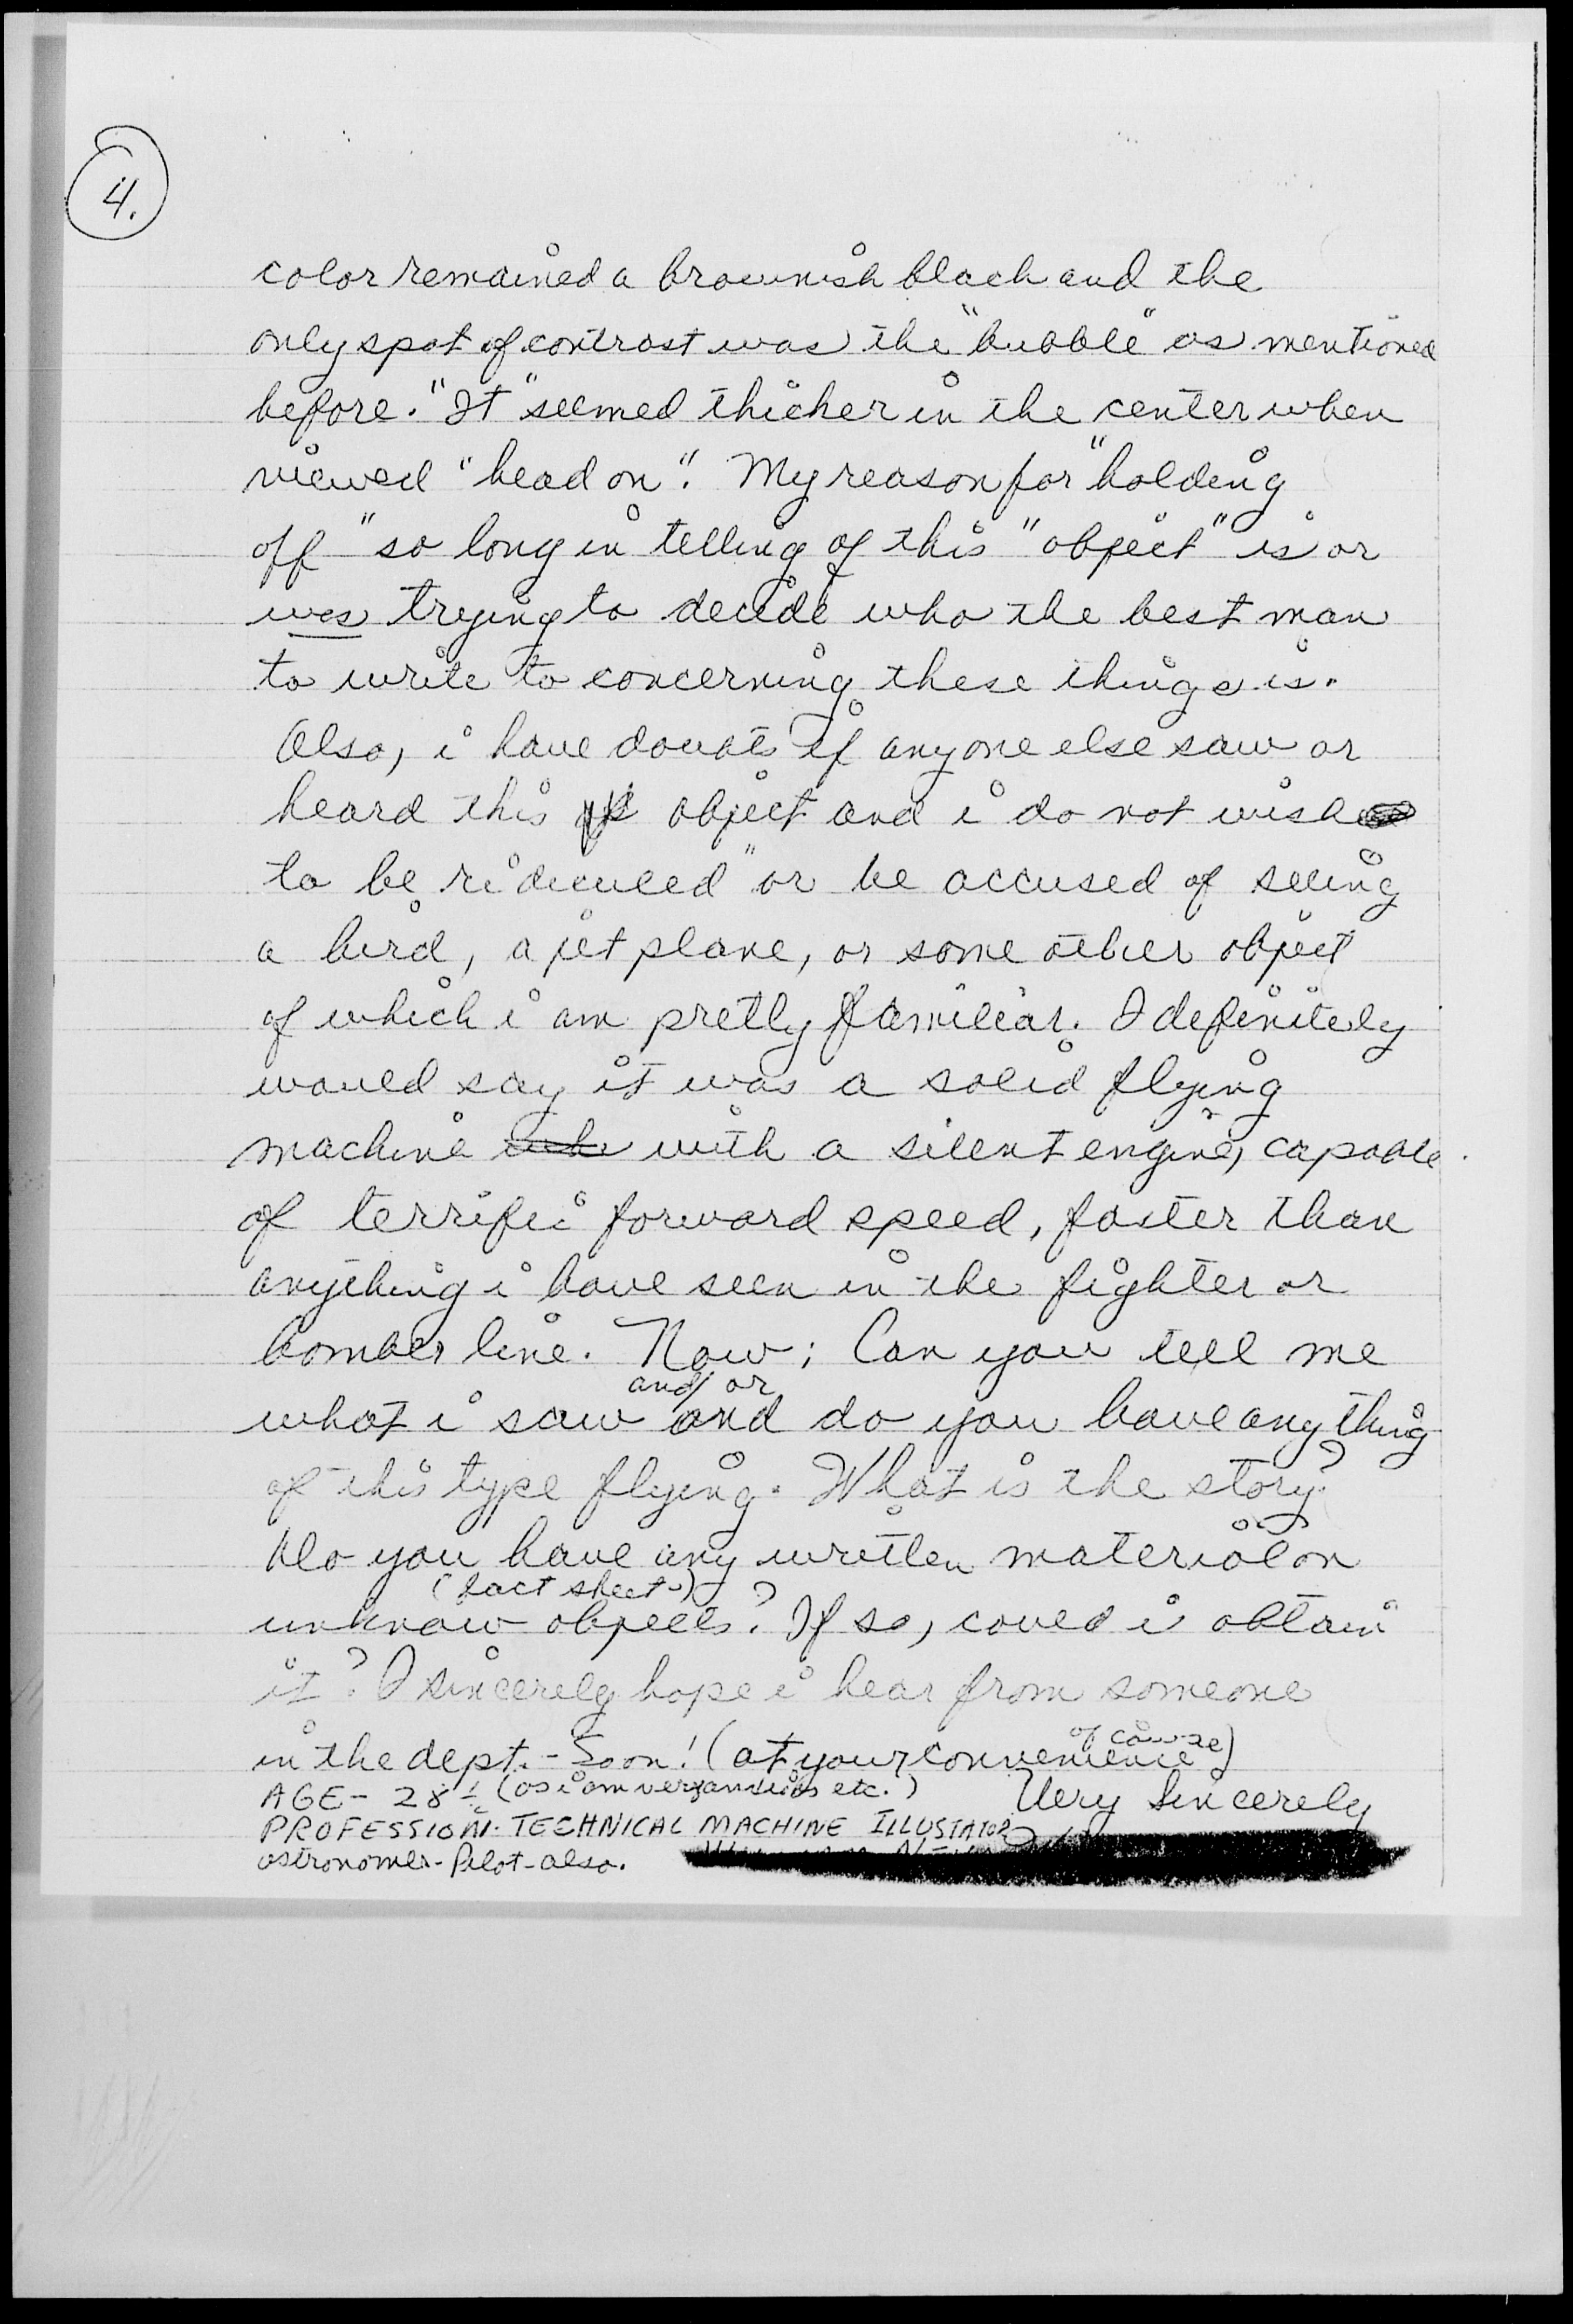 4.
color remained a brownish black and the
only spot of contrast was the "bubble" as mentioned
before. "It" seemed thicker in the center when
viewed "head on". My reason for "holding
off" so long in telling of this "object" is or
was trying to decide who the best man
to write to concerning these things is.
Also, i have doubts if anyone else saw or
heard this object and i do not wish
to be ridiculed" or be accused of seeing
a bird, a jet plane, or some other object
of which i am pretty familiar. I definitely
would say it was a solid flying
machine with a silent engine, capable
of terrific forward speed, faster than
anything i have seen in the fighter or
bomber line. Now; Can you tell me
and/or
what i saw and do you have anything
of this type flying. What is the story?
Do you have any written material on
(fact sheet)
unknow objects? If so, could i obtain
it? I sincerely hope i hear from someone
in the dept. - Soon! (at your convenience of course)
AGE - 28 (as i am very anxious etc.) Very Sincerely
PROFESSION. TECHNICAL MACHINE ILLUSTATOR
astronomer - Pilot - also.